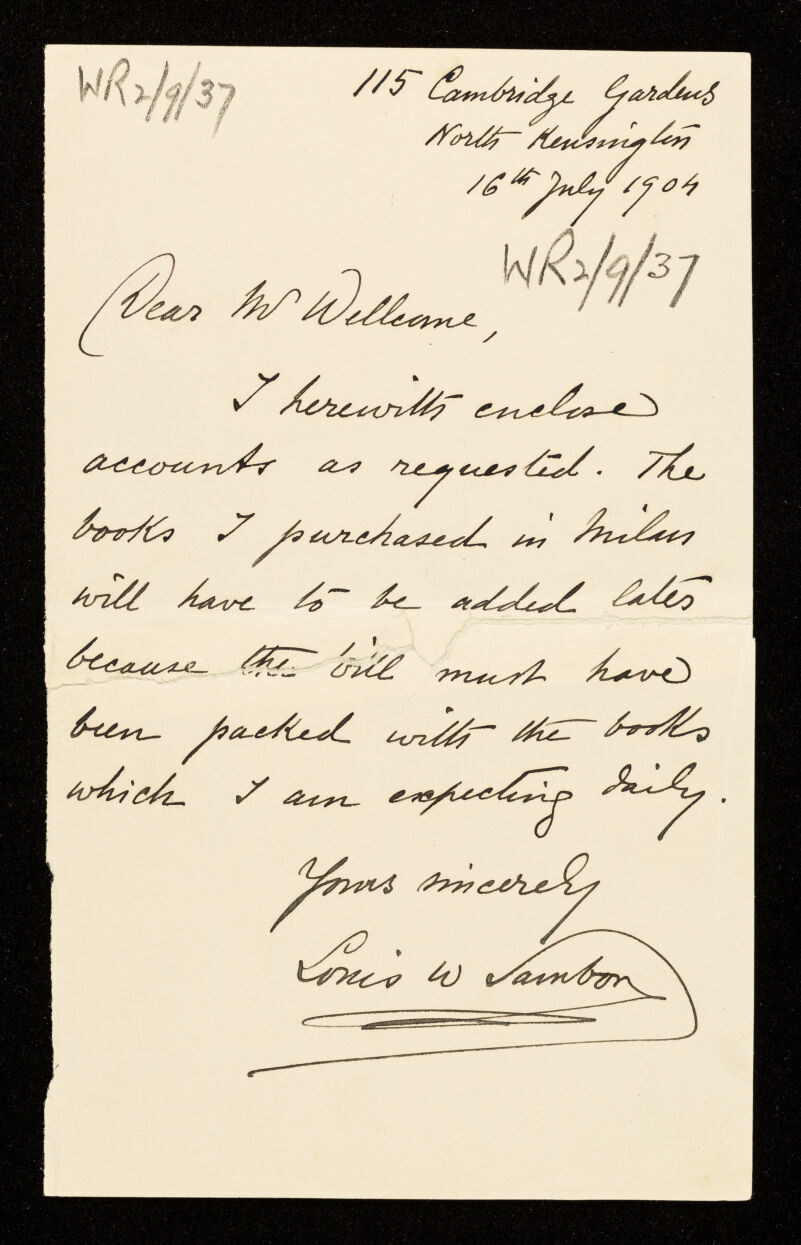 WR2/9/37
115 Cambridge Gardens
North Kensington
16th July 1904
WR2/9/37
Dear Mr Wellcome,
I herewith enclose
accounts as requested. The
books I purchased in Milan
will have to be added later
because the bill must have
been packed with the books
which I am expecting daily.
Yours sincerely
Louis W Sambon